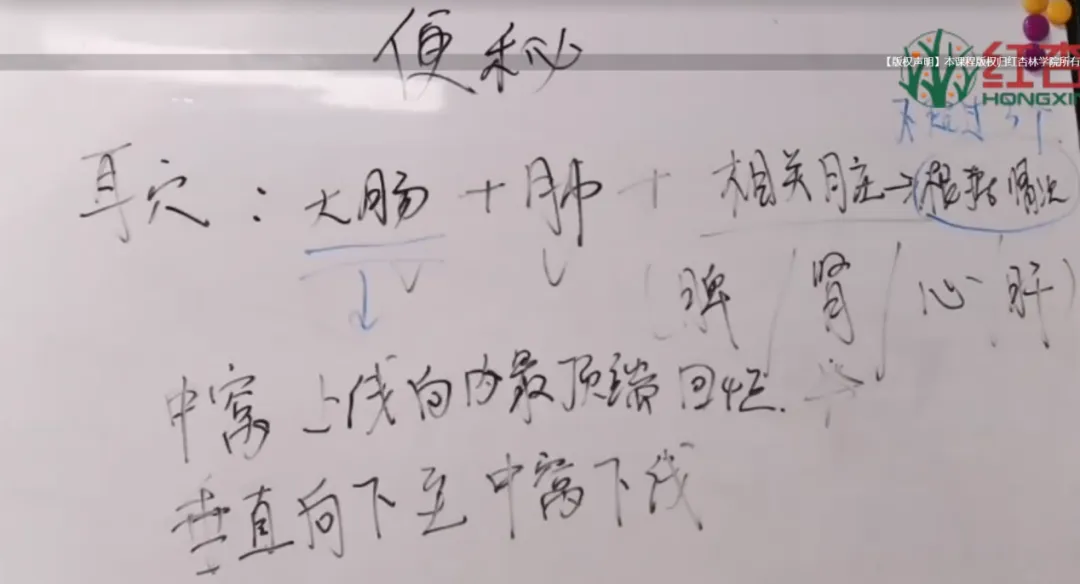 便秘
【版权声明】本课程版权归红杏林学院所有
红杏
HONGXIN
不超过3个
耳穴：大肠+肺+相关脏→根据情况
(脾/肾/心 肝)
中窝上线向内最顶端回1.
垂直向下至中窝下线